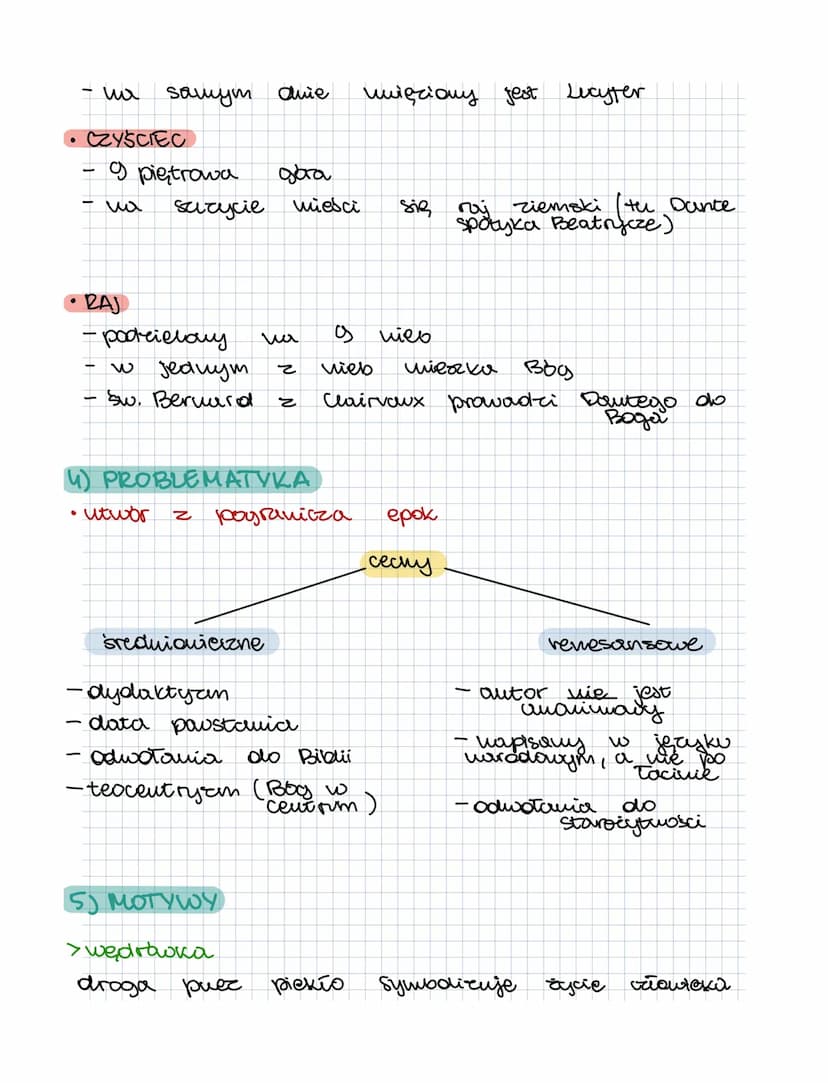 - na samym dnie uwięziony jest Lucyfer
• CZYŚCIEC
- 9 piętrowa góra
- na szczycie mieści się raj ziemski (tu Dante
spotyka Beatrycze)
• RAJ
- podzielony na 9 nieb
- w jednym z nieb mieszka Bóg
- św. Bernard z Clairvaux prowadzi Dantego do
Boga
4) PROBLEMATYKA
• utwór z pogranicza epok
cechy
średniowieczne
- dydaktyzm
- data powstania
- odwołania do Biblii
- teocentryzm (Bóg w
centrum)
renesansowe
- autor nie jest
anonimowy
- napisany w języku
narodowym, a nie po
łacinie
- odwołania do
starożytności
5) MOTYWY
> wędrówka
droga przez piekło symbolizuje życie człowieka